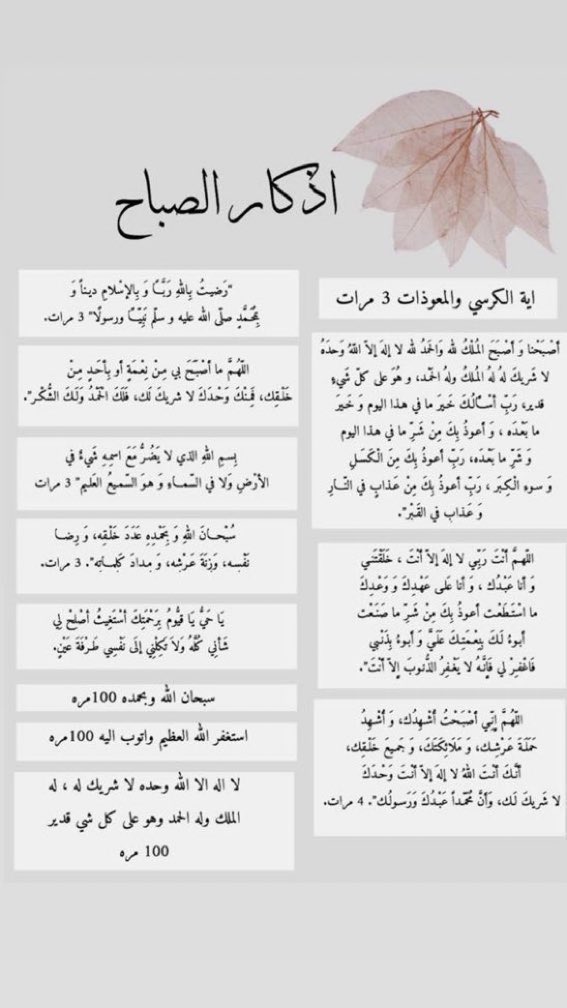 اذكار الصباح
اية الكرسي والمعوذات 3 مرات
أَصْبَحْنا وَ أَصْبَحَ المُلْكُ لله وَالحَمدُ لله لا إلهَ إلاّ اللهُ وَحدَهُ
لا شَريكَ لهُ لهُ المُلكُ ولهُ الحَمْد، و هُوَ على كلّ شَيءٍ
قدير، رَبِّ أسْـألُـكَ خَـيرَ ما في هـذا اليوم وَ خَـيرَ
ما بَعْـدَه ، وَ أَعوذُ بِكَ مِنْ شَـرِّ ما في هـذا اليوم
وَ شَرِّ ما بَعْدَه، رَبِّ أَعوذُ بِكَ مِنَ الْكَسَـلِ
وَ سوءِ الْكِـبَر ، رَبِّ أَعوذُ بِكَ مِنْ عَـذابٍ في النّـارِ
وَ عَـذابٍ في القَـبْر".
اللّهـمَّ أَنْتَ رَبِّي لا إلهَ إلاّ أَنْتَ ، خَلَقْتَنـي
وَ أَنا عَبْـدُك ، وَ أَنا عَلـى عَهْـدِكَ وَ وَعْـدِكَ
ما اسْتَـطَعْـت أَعوذُ بِكَ مِنْ شَـرِّ ما صَنَـعْت
أَبوءُ لَـكَ بِنِعْـمَتِـكَ عَلَـيَّ وَ أَبوءُ بِذَنْـبي
فَاغْفِرْ لي فَإِنَّـهُ لا يَغْـفِرُ الذُّنـوبَ إِلاّ أَنْتَ".
اللّهُـمَّ إِنِّـي أَصْبَـحْتُ أُشْـهِدُك، وَ أُشْـهِدُ
حَمَلَـةَ عَـرْشِـك، وَ مَلَائِكَتَكَ، وَ جَمـيعَ خَلْـقِك،
أَنَّـكَ أَنْـتَ اللهُ لا إلهَ إلاّ أَنْـتَ وَحْـدَكَ
لا شَريكَ لَـك، وَأَنَّ مُحَمّـداً عَبْـدُكَ وَرَسـولُـك". 4 مرات.
"رَضيـتُ بِاللهِ رَبَّـاً وَ بِالإِسْلامِ ديـناً وَ
بِمُحَمَّدٍ صلّى الله عليه و سلّم نَبِيّـاً ورسولًا" 3 مرات.
اللّهُمَّ ما أَصْبَـحَ بي مِـنْ نِعْـمَةٍ أَو بِأَحَـدٍ مِـنْ
خَلْـقِك، فَمِنْـكَ وَحْدَكَ لا شريكَ لَك، فَلَكَ الْحَمْـدُ وَلَـكَ الشُّكْـر".
بِسمِ اللهِ الذي لا يَضُرُّ مَعَ اسمِهِ شَيءٌ في
الأرْضِ وَلا في السّمـاءِ وَ هوَ السّميعُ العَليم" 3 مرات
سُبْحـانَ اللهِ وَ بِحَمْـدِهِ عَدَدَ خَلْـقِه، وَ رِضـا
نَفْسِـه، وَزِنَـةَ عَـرْشِه، وَ مِـدادَ كَلِمـاتِـه". 3 مرات.
يَا حَيُّ يَا قيُّومُ بِرَحْمَتِكَ أَسْتَغِيثُ أَصْلِحْ لِي
شَأْنِي كُلَّهُ وَلاَ تَكِلْنِي إِلَى نَفْسِي طَـرْفَةَ عَيْنٍ.
سبحان الله وبحمده 100مره
استغفر الله العظيم واتوب اليه 100مره
لا اله الا الله وحده لا شريك له ، له
الملك وله الحمد وهو على كل شي قدير
100 مره